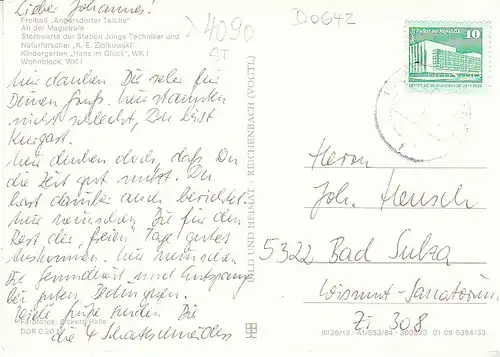 Lieber Johannes!
Freibad „Angersdorfer Teiche"
An der Magistrale
Sternwarte der Station Junge Techniker und
Naturforscher „K. E. Ziolkowski"
Kindergarten „Hans im Glück", WK I
Wohnblock, WK I
4090
ST
D0642
10
Wir danken Dir sehr für
Deinen Gruß. Wir staunten
nicht schlecht, Du bist
Kurgast.
Wir denken doch, daß Du
die Zeit gut nutzt. Du
hast darüber auch berichtet.
Wir wünschen Dir für den
Rest der „freien" Tage gutes
Wir wünschen
Dir Gesundheit und Entspannung
bei guten Bedingungen.
Viele Grüße senden Dir
die 4
Farbfotos: Sickert, Halle
DDR 0,20 M
BILD UND HEIMAT · REICHENBACH (VOGTL)
Herrn
Joh. Heusch
5322 Bad Sulza
Wismut-Sanatorium
Zi 308
III/26/13 A1/533/84 300533 01 08 0354/33